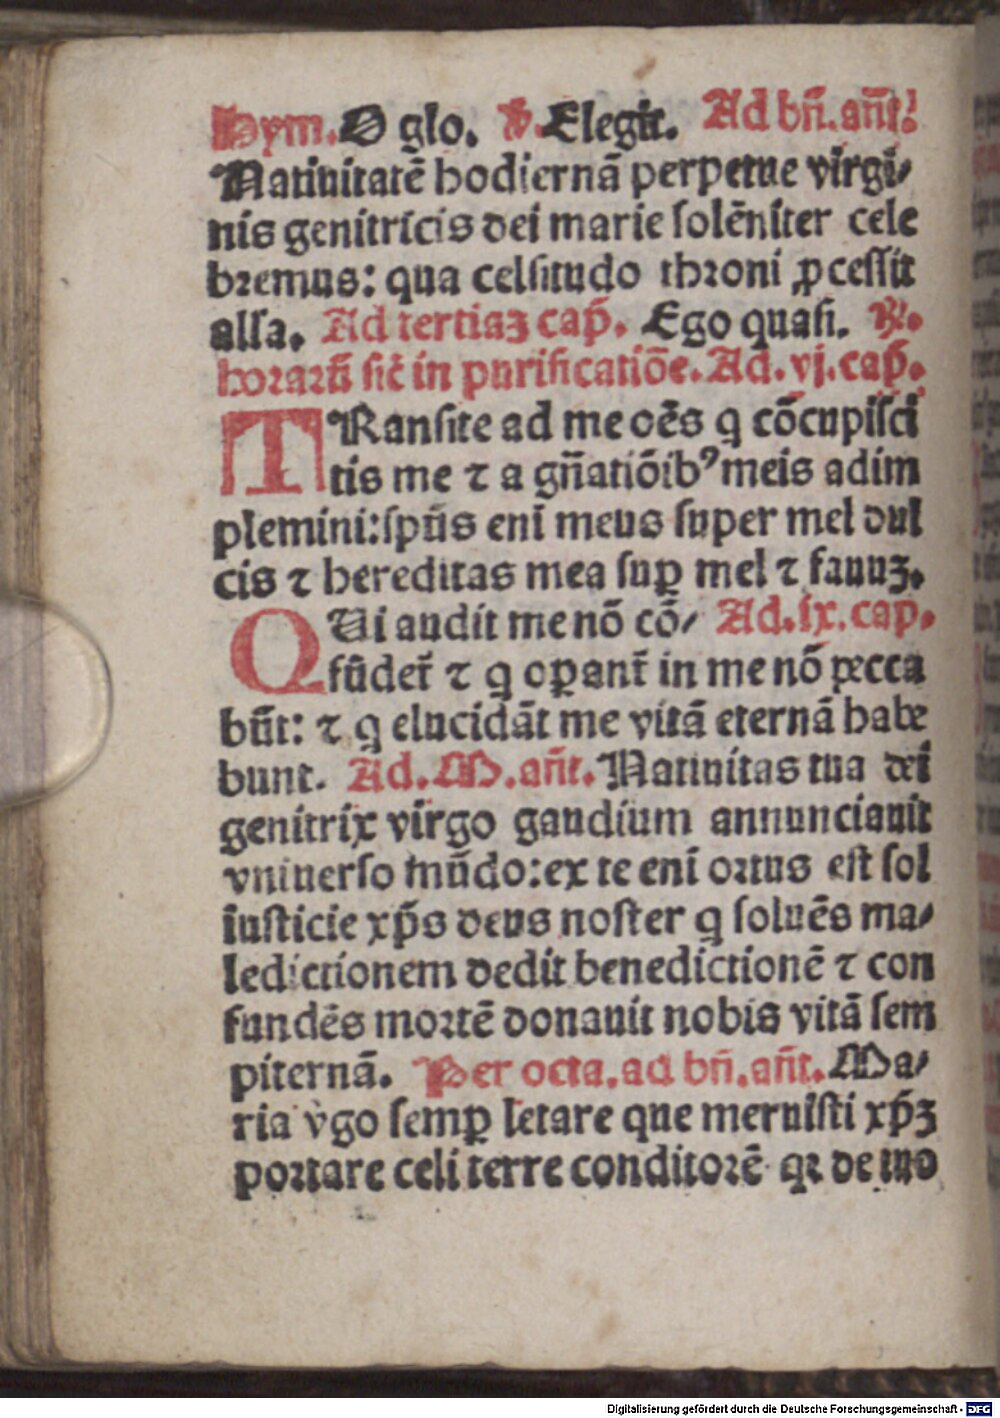 Hym. O glo. ℣. Elegit. Ad bn̄. an̄t.
Natiuitatē hodiernā perpetue virgi⸗
nis genitricis dei marie solēniter cele
bremus: qua celsitudo throni ꝓcessit
alla. Ad tertiaꝫ cap̄. Ego quasi. ℟.
horarū sic̄ in purificatiōe. Ad. vj. cap̄.
TRansite ad me oēs q cōcupisci
tis me ⁊ a gn̄atiōibꝰ meis adim
plemini: spūs enī meus super mel dul
cis ⁊ hereditas mea suꝑ mel ⁊ fauuꝫ.
QUi audit me nō cō⸗ Ad. ix. cap.
fūdet̄ ⁊ q oꝑant̄ in me nō pecca
būt: ⁊ q elucidāt me vitā eternā habe
bunt. Ad. M. an̄t. Natiuitas tua dei
genitrix virgo gaudium annunciauit
vniuerso mūdo: ex te enī ortus est sol
iusticie xp̄s deus noster q soluēs ma⸗
ledictionem dedit benedictionē ⁊ con
fundēs mortē donauit nobis vitā sem
piternā. Per octa. ad bn̄. an̄t. Ma⸗
ria v̄go semꝑ letare que meruisti xp̄ꝫ
portare celi terre conditorē qꝛ de tuo
Digitalisierung gefördert durch die Deutsche Forschungsgemeinschaft - DFG